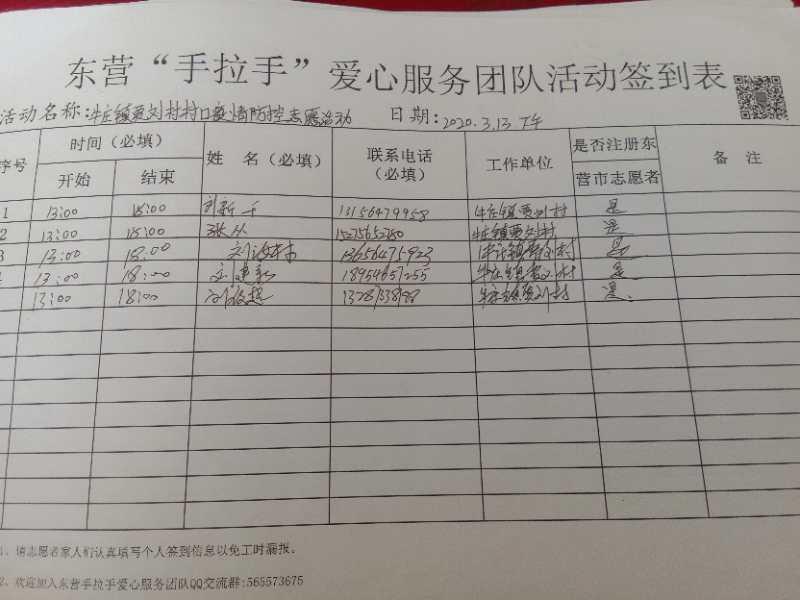 东营“手拉手”爱心服务团队活动签到表
活动名称:牛庄镇贾刘村村口疫情防控志愿活动 日期:2020.3.13 下午
序号 时间(必填) 姓 名(必填) 联系电话(必填) 工作单位 是否注册东营市志愿者 备 注
开始 结束
1 13:00 18:00 13156479958 牛庄镇贾刘村 是
2 13:00 18:00 牛庄镇贾刘村 是
3 13:00 18:00 13656475923 牛庄镇贾刘村 是
13:00 18:00 18954651255 牛庄镇贾刘村 是
13:00 18:00 牛庄镇贾刘村 是
1、请志愿者家人们认真填写个人签到信息以免工时漏报。
2、欢迎加入东营手拉手爱心服务团队QQ交流群:565573675